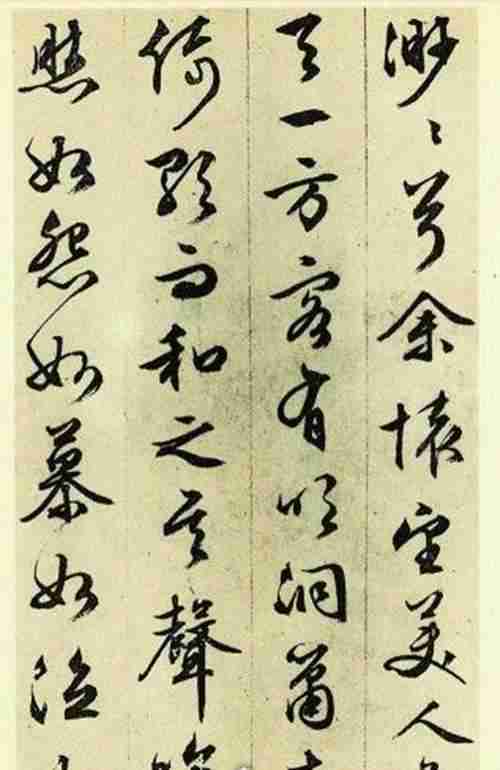 渺〻兮余懷望美人
天一方客有吹洞簫
倚歌而和之其聲
然如怨如慕如泣